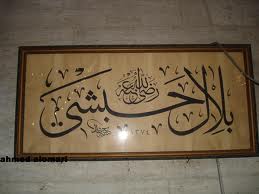 بلال حبشي
رضي الله عنه
١٣٧٤
ahmed alomari